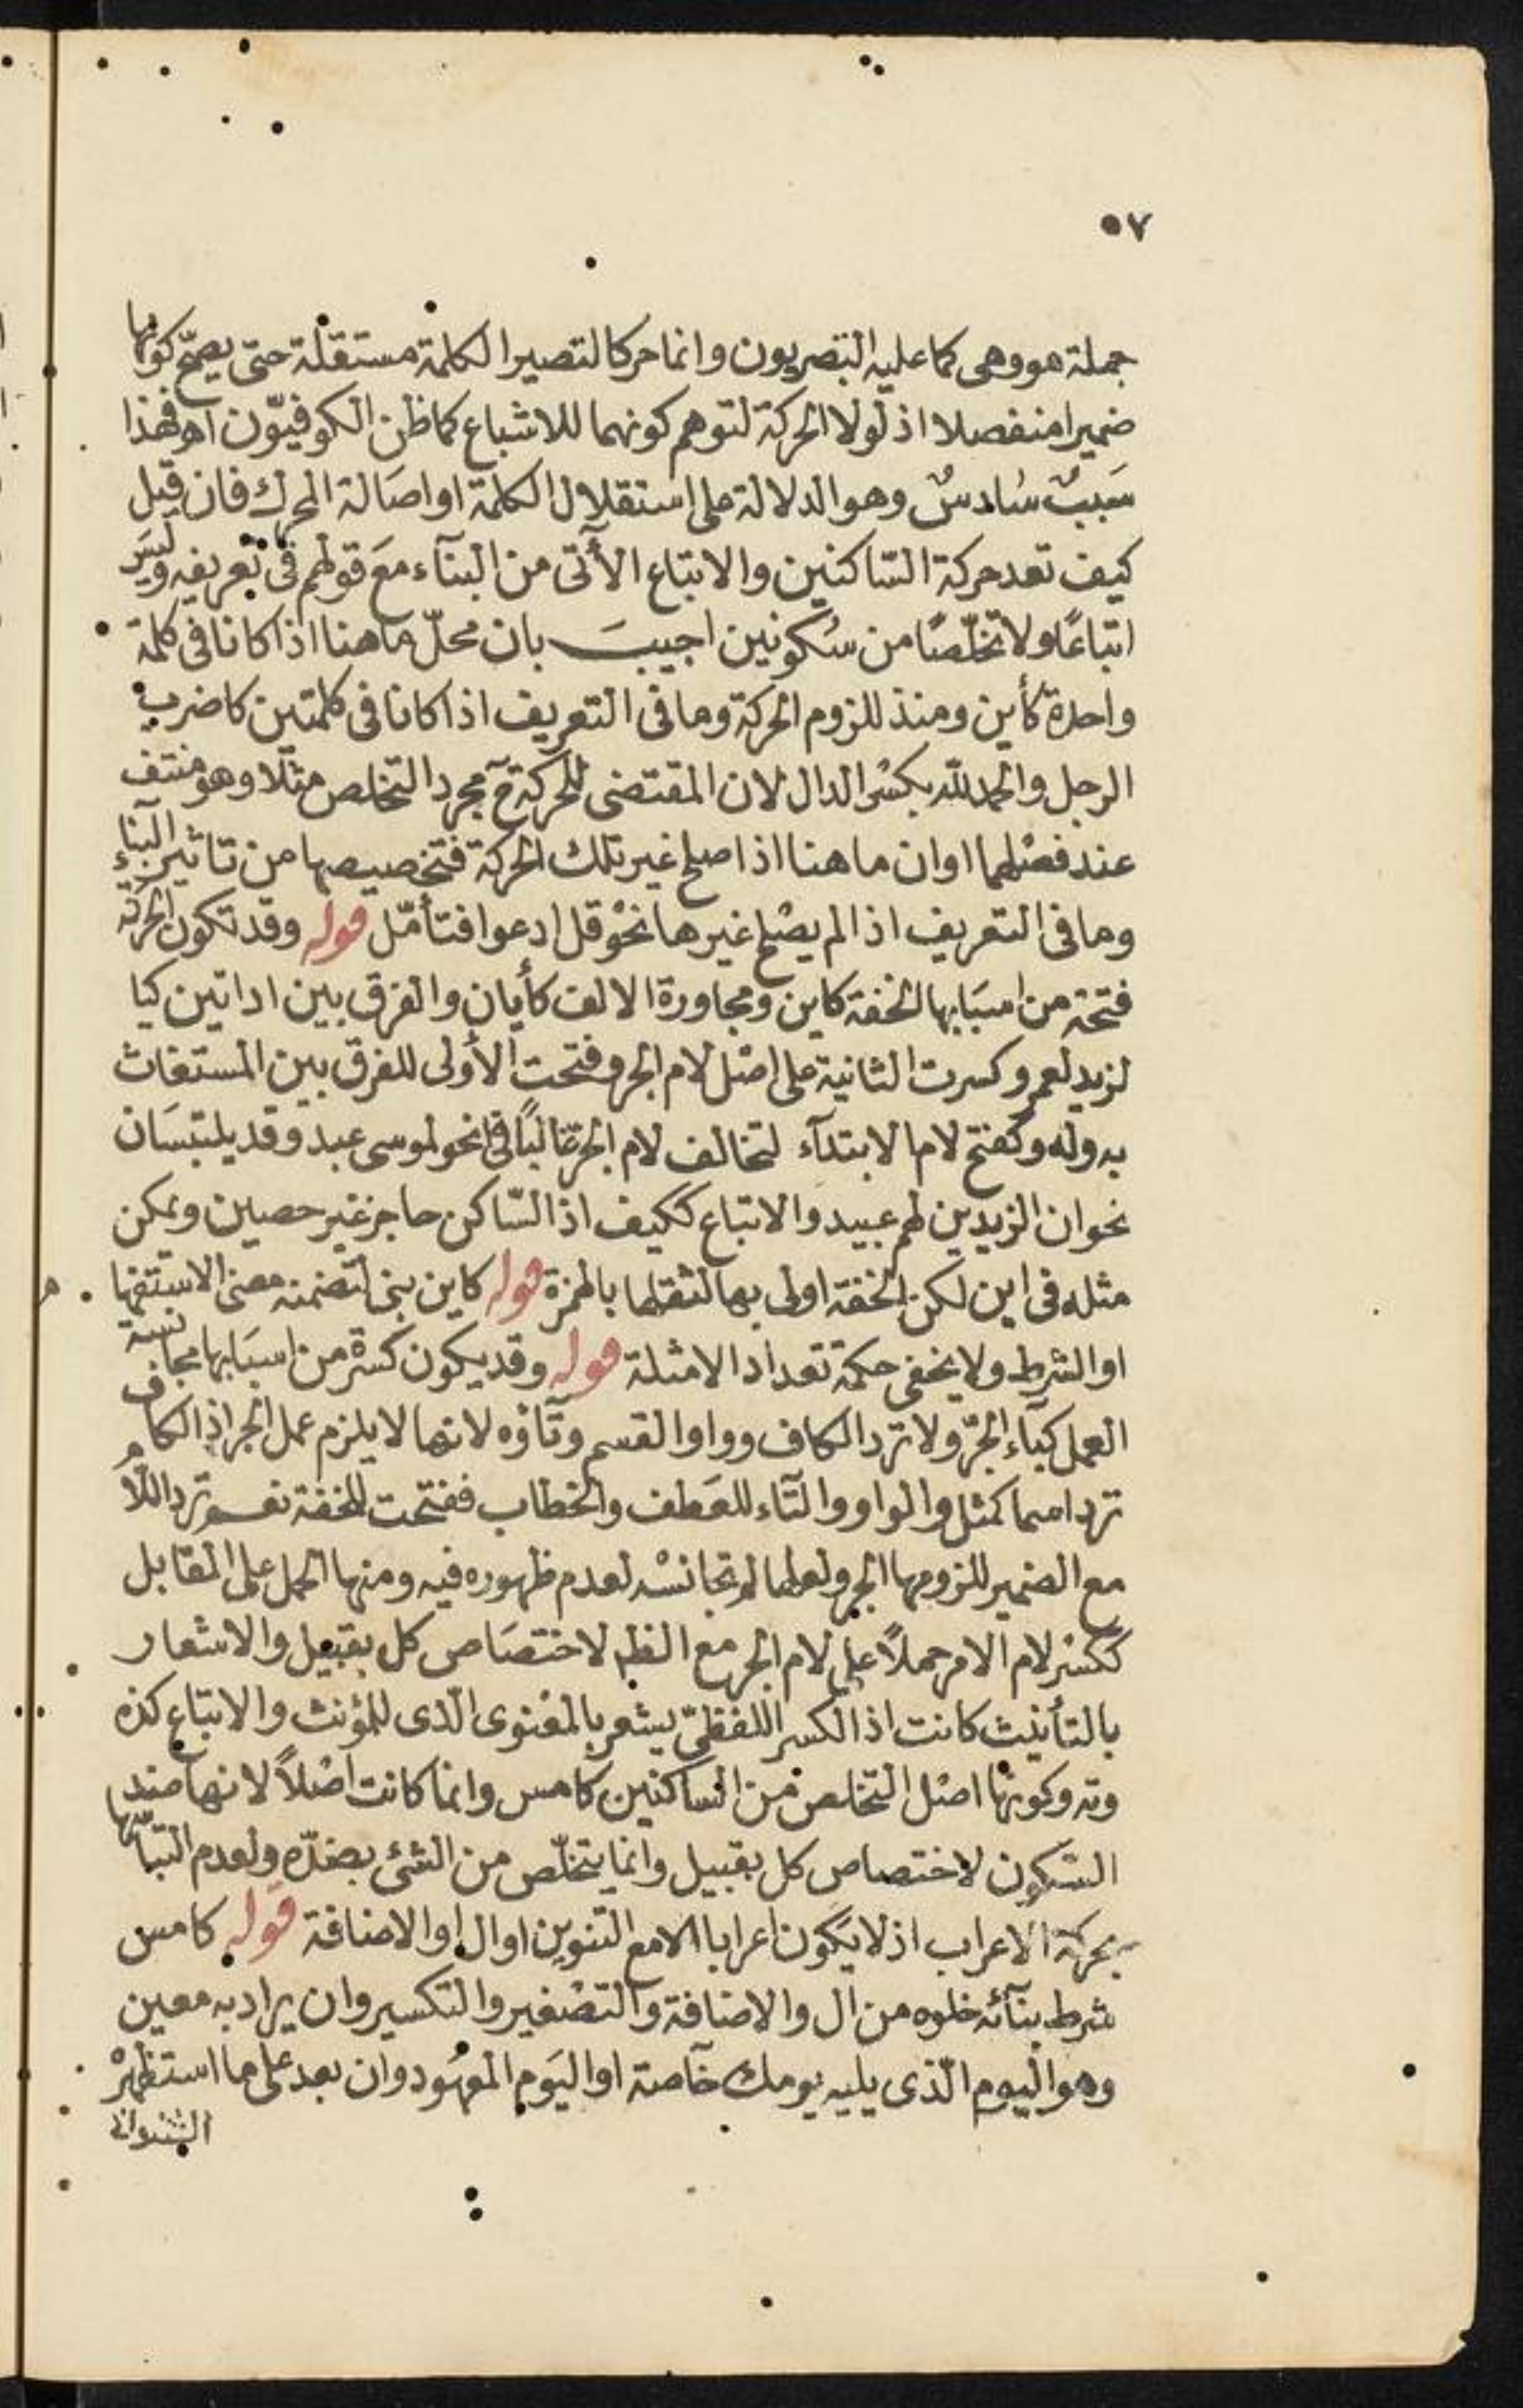 ٥٧
جملة هو وهى كما عليه البصريون وانما حركا لتصير الكلمة مستقلة حتى يصحّ كونها
ضميرا منفصلا اذ لولا الحركة لتوهم كونهما للاشباع كما ظن الكوفيّون اهـ فهذا
سَببٌ سَادسٌ وهو الدلالة على استقلال الكلمة او اصَالة المحرك فان قيل
كيف تعد حركة السّاكنين والاتباع الأتى من البنآء معَ قولهم فى تعريفه وليسَ
اتباعًا ولا تخلّصًا من سُكونين اجيبَ بان محلّ ما هنا اذا كانا فى كلمة
واحدة كأين ومنذ للزوم الحركة وما فى التعريف اذا كانا فى كلمتين كاضرب
الرجل والحمد لله بكسْر الدال لان المقتضى للحركة ح مجرد التخلص مثلا وهو منتف
عند فصْلهما او ان ما هنا اذا صلح غير تلك الحركة فتخصيصها من تاثير البناء
وما فى التعريف اذا لم يصْلح غيرها نحْو قل ادعوا فتأمّل قوله وقد تكون الحركة
فتحة من اسبَابها الخفة كاين ومجاورة الالف كأيان والفرق بين اداتين كيا
لزيد لعمرو كسرت الثانية على اصْل لام الجر وفتحت الأولى للفرق بين المستغاث
به وله وكفتح لام الابتدآء لتخالف لام الجرّ غالبًا فى نحو لموسى عبد وقد يلتبسَان
نحو ان الزيدين لهم عبيد والاتباع ككيف اذ السّاكن حاجز غير حصين ويمكن
مثله فى اين لكن الخفة اولى بها لثقلها بالهمزة قوله كاين بنى لتضمنه معنى الاستفها
م او الشرط ولا يخفى حكمة تعداد الامثلة قوله وقد يكون كسرة من اسبَابها مجانسة
العمل كبآء الجرّ ولا ترد الكاف وواو القسم وتآؤه لانها لا يلزم عمل الجر اذ الكاف
ترد اسما كمثل والواو والتآء للعَطف والخطاب ففتحت للخفة نعم ترد اللام
مع الضمير للزومها الجر ولعلها لم تجانسْه لعدم ظهوره فيه ومنها الحمل على المقابل
ككسْر لام الامر حملاً على لام الجر مع الظم لاختصَاص كل بقبيل والاشعار
بالتأنيث كانت اذ الكسر اللفظىّ يشعر بالمعْنوى الّذى للمؤنث والاتباع كذه
وته وكونها اصْل التخلص من الساكنين كامس وانما كانت اصْلاً لانها ضد
السّكون لاختصاص كل بقبيل وانما يتخلّص من الشئ بضدّه ولعدم التباسها
بحركة الاعراب اذ لا يكون اعرابا الا مع التنوين او ال او الاضافة قوله كامس
شرط بنآئه خلوه من ال والاضافة والتصْغير والتكسير وان يراد به معين
وهو اليوم الّذى يليه يومك خآصة او اليَوم المعهُود وان بعد على ما استظهرْ
الشنوانى